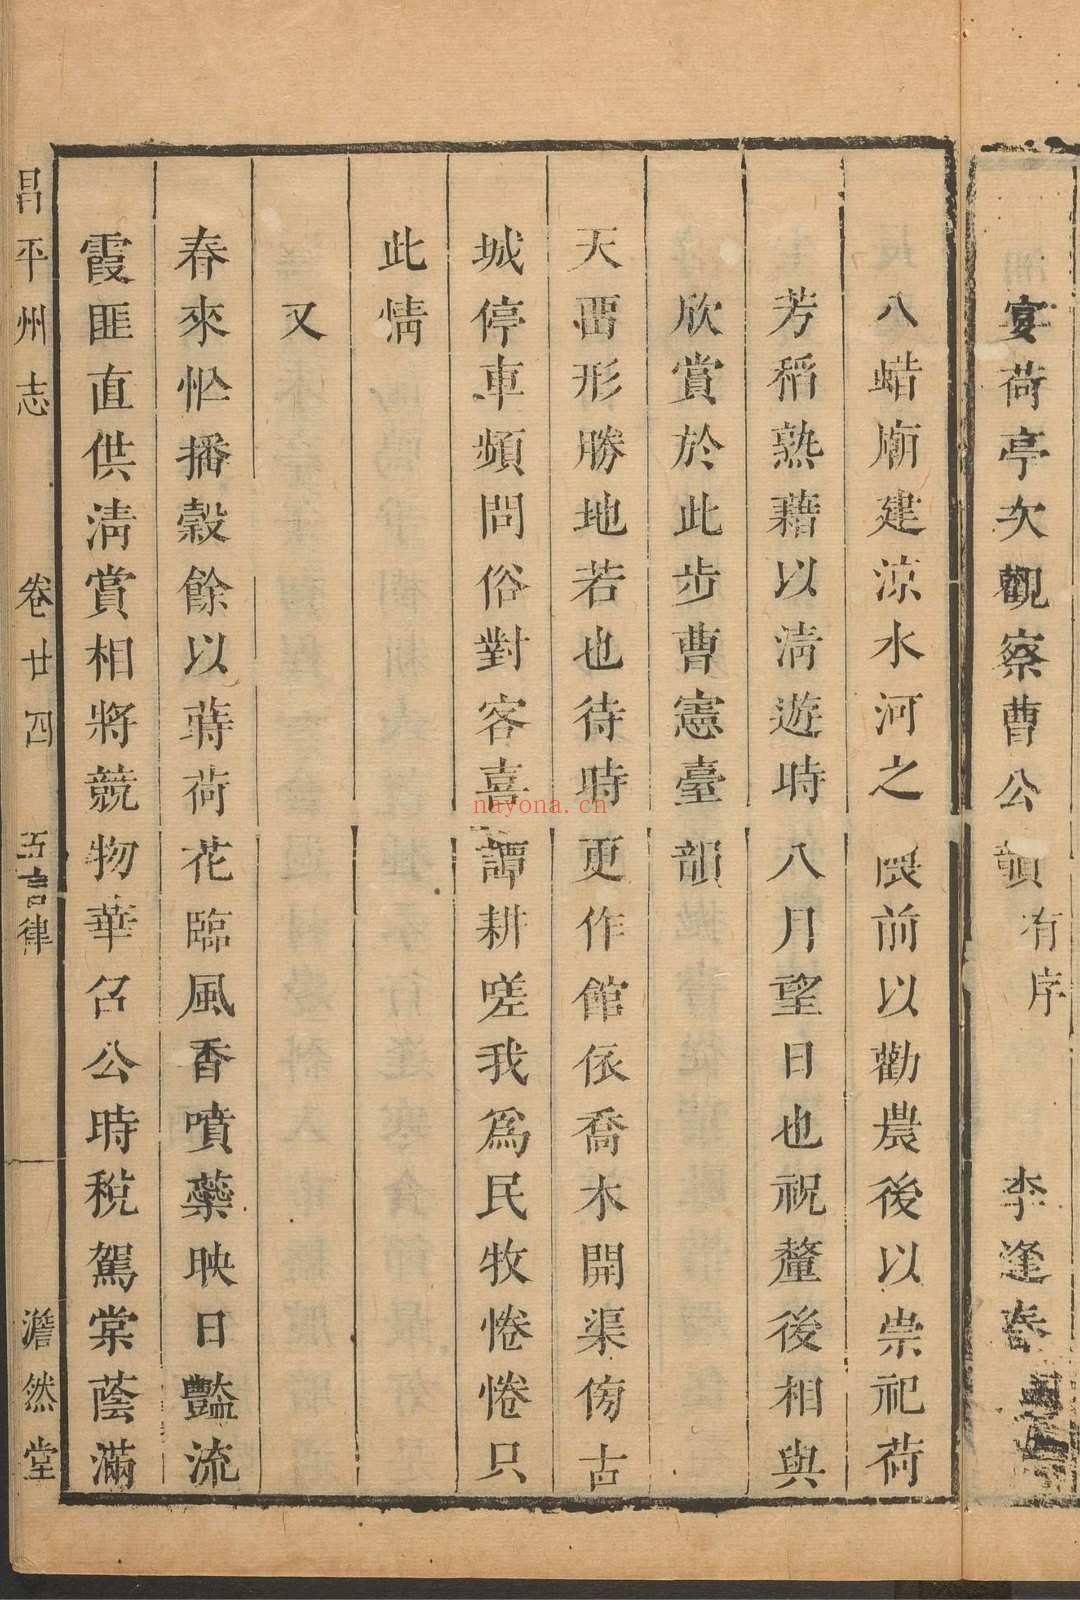 宴荷亭次觀察曹公韻有序 李逢春
八蜡廟建涼水河之畏前以勸農後以崇祀荷
芳稻熟藉以淸遊時八月望日也祝釐後相與
欣賞於此步曹憲臺韻
天畱形勝地若也待時更作館依喬木開渠傍古
城停車頻問俗對客喜譚耕嗟我爲民牧惓惓只
此情
又
春來怭播穀餘以蒔荷花臨風香噴藥映日豔流
霞匪直供淸賞相將競物華召公時稅駕棠蔭滿
昌平州志 卷廿四 五言律 澹然堂
nayona.cn